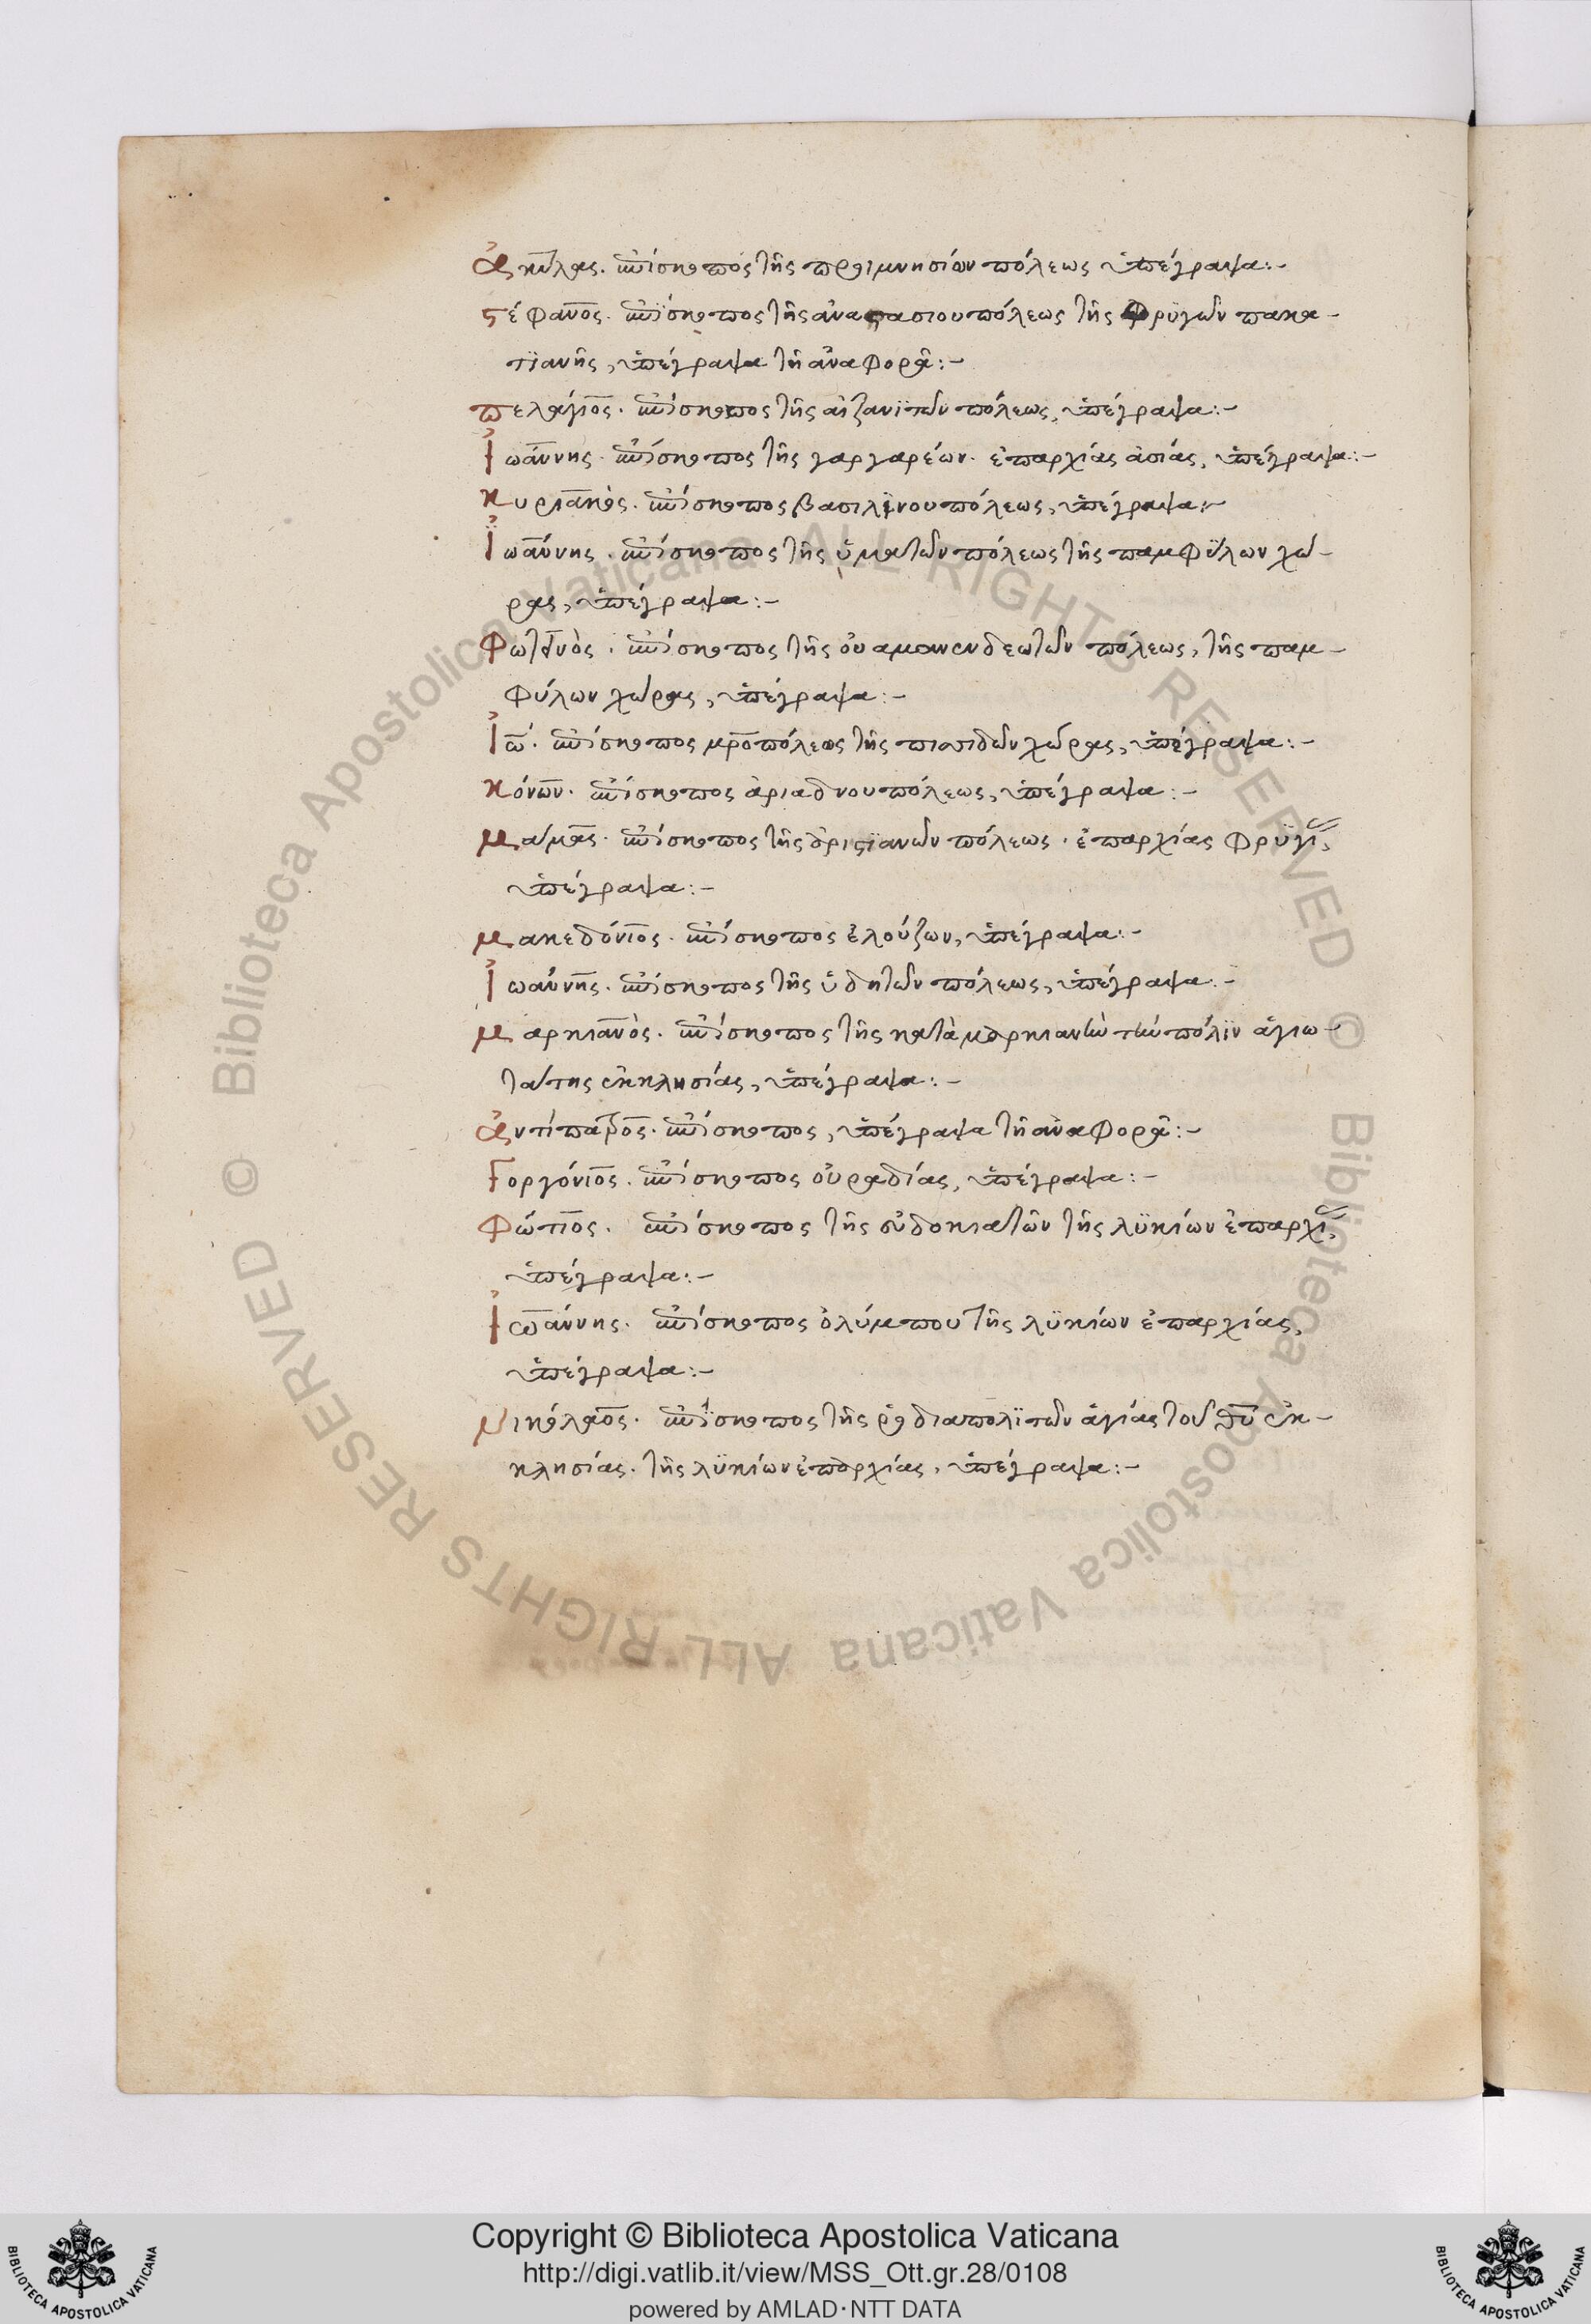 ἀκύλας. ἐπίσκοπος τῆς πραιμνησίων πόλεως ὑπέγραψα:-
στέφανος. ἐπίσκοπος τῆς ἀναστασιουπόλεως τῆς φρυγῶν πακα-
τϊανῆς, ὑπέγραψα τῆ ἀναφορᾶ:-
πελάγιος. ἐπίσκοπος τῆς αἰζανϊτῶν πόλεως, ὑπέγραψα:-
ἰωάννης. ἐπίσκοπος τῆς γαργαρέων. ἐπαρχίας ἀσίας, ὑπέγραψα:-
κυριακὸς. ἐπίσκοπος βασιλινουπόλεως, ὑπέγραψα:-
ἰωάννης. ἐπίσκοπος τῆς ὑματῶν πόλεως τῆς παμφϋλων χώ-
ρας, ὑπέγραψα:-
φωτεινὸς. ἐπίσκοπος τῆς πόλεως, τῆς παμ-
φύλων χώρας, ὑπέγραψα:-
ἰω. ἐπίσκοπος μροπόλεως τῆς πισιδῶν χώρας, ὑπέγραψα:-
κόνων. ἐπίσκοπος ἀριαδνουπόλεως, ὑπέγραψα:-
μάμας. ἐπίσκοπος τῆς ὀριστϊανῶν πόλεως. ἐπαρχίας φρϋγί,
ὑπέγραψα:-
μακεδόνιος. ἐπίσκοπος ἐλούζων, ὑπέγραψα:-
ἰωάννης. ἐπίσκοπος τῆς ὑδητῶν πόλεως, ὑπέγραψα:-
μαρκιανὸς. ἐπίσκοπος τῆς κατὰ μαρκιανὴν τὴν πόλϊν ἁγιω-
τάτης ἐκκλησίας, ὑπέγραψα:-
ἀντίπατρος. ἐπίσκοπος, ὑπέγραψα τῆ ἀναφορᾶ:-
γοργόνιος. ἐπίσκοπος οὐραδίας, ὑπέγραψα:-
φώτιος. ἐπίσκοπος τῆς εὐδοκιατῶν τῆς λϋκίων ἐπαρχί,
ὑπέγραψα:-
ἰωάννης. ἐπίσκοπος ὀλύμπου τῆς λϋκίων ἐπαρχίας,
ὑπέγραψα:-
νικόλαος. ἐπίσκοπος τῆς ῥοδιαπολϊτῶν ἁγίας τοῦ θῦ ἐκ-
κλησίας. τῆς λϋκίων ἐπαρχίας, ὑπέγραψα:-
© Biblioteca Apostolica Vaticana ALL RIGHTS RESERVED
© Biblioteca Apostolica Vaticana ALL RIGHTS RESERVED
Copyright © Biblioteca Apostolica Vaticana
http://digi.vatlib.it/view/MSS_Ott.gr.28/0108
powered by AMLAD·NTT DATA
BIBLIOTECA APOSTOLICA VATICANA
BIBLIOTECA APOSTOLICA VATICANA